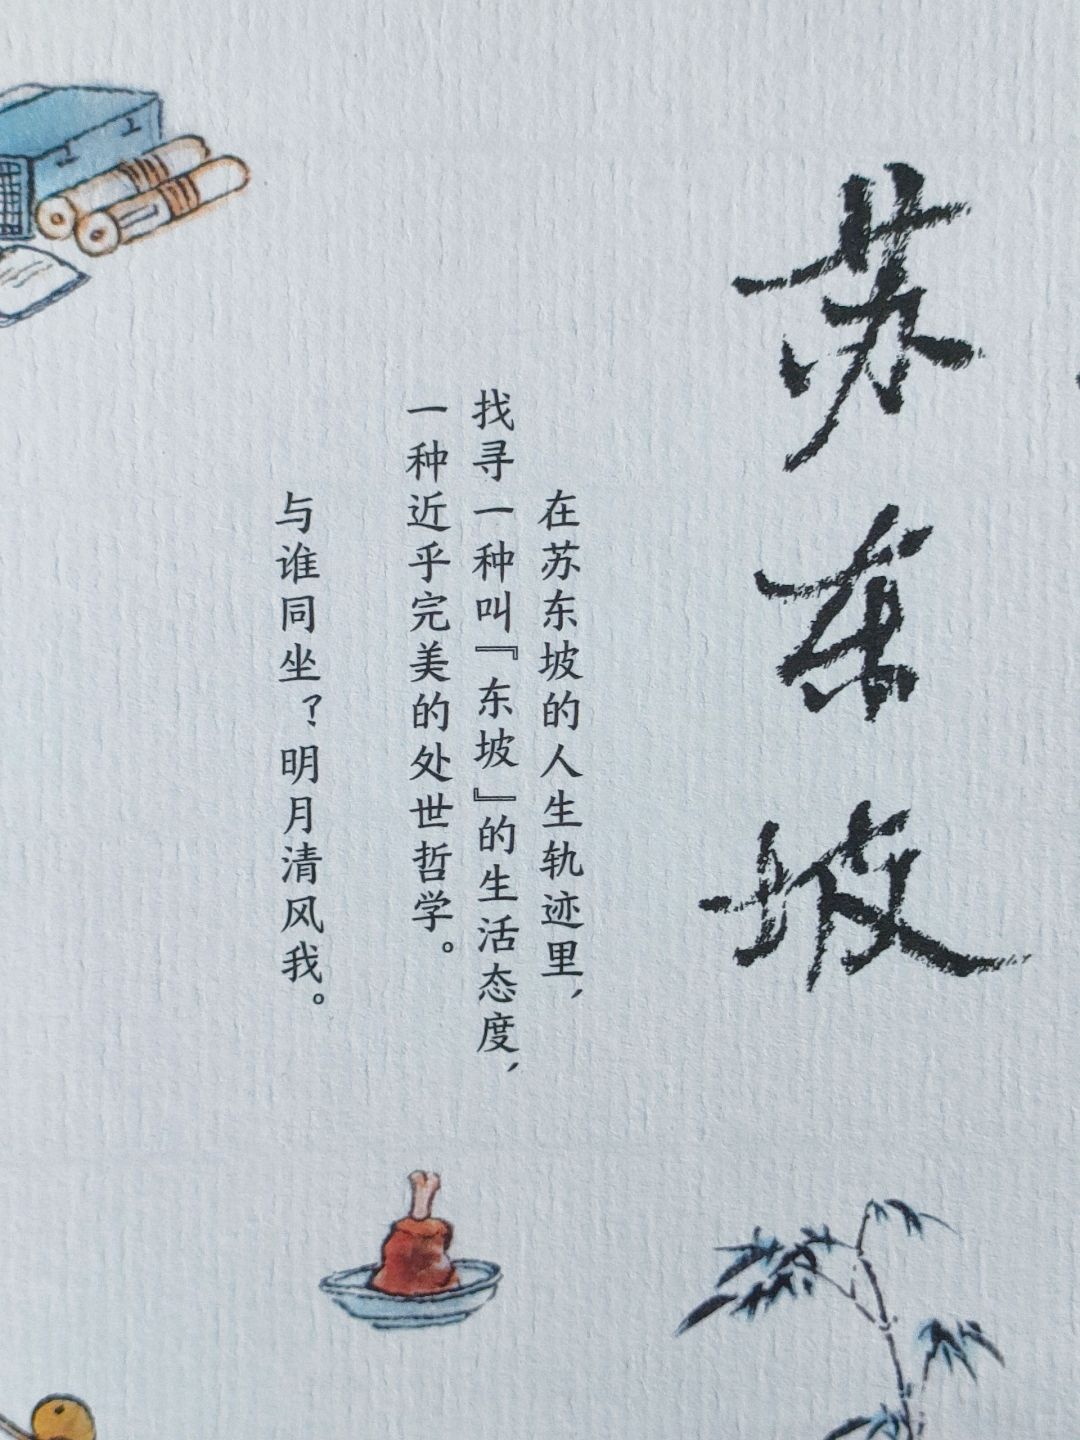 苏东坡
在苏东坡的人生轨迹里，
找寻一种叫『东坡』的生活态度，
一种近乎完美的处世哲学。
与谁同坐？明月清风我。